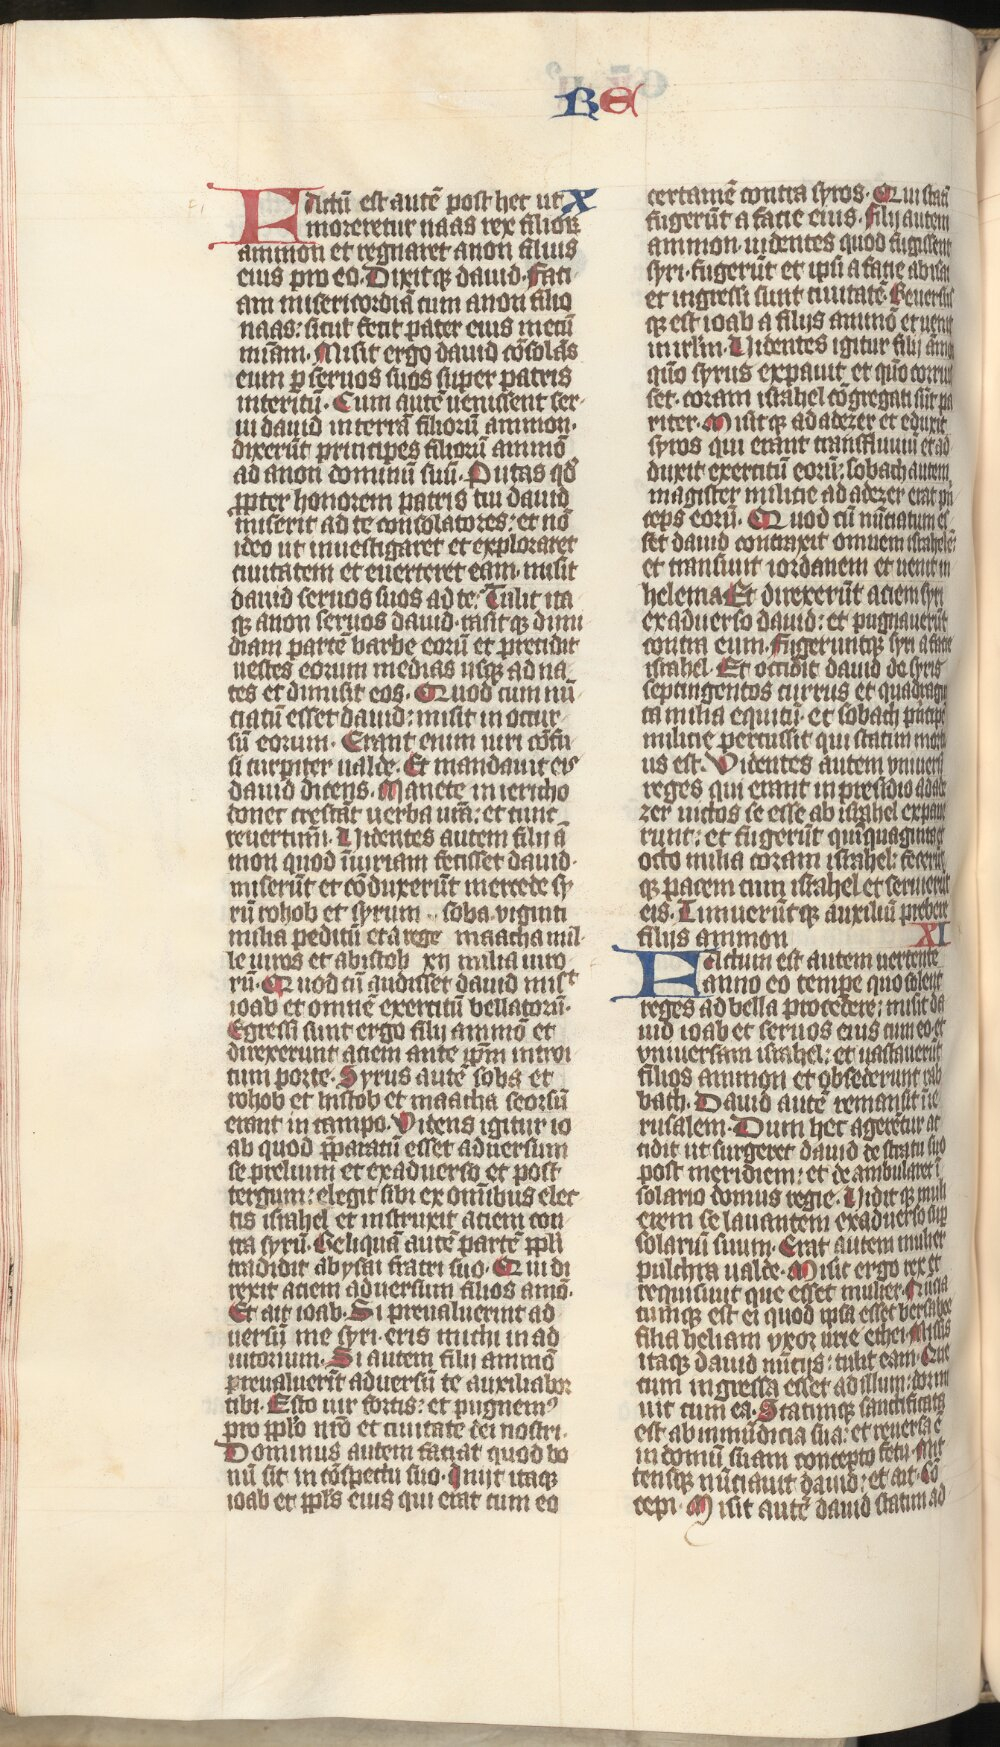 RE
Factū est autē post hec ut X
moreretur naas rex filioꝝ
ammon et regnaret anon filius
eius pro eo. Dixitqꝫ dauid. Faci
am misericordiā cum anon filio
naas: sicut fecit pater eius mecū
mīam. Misit ergo dauid cōsolās
eum ꝑ seruos suos super patris
interitū. Cum autē uenissent ser-
ui dauid in terrā filiorū ammon.
dixerūt principes filiorū ammō
ad anon dominū suū. Putas qđ
ꝓpter honorem patris tui dauid
miserit ad te consolatores: et nō
ideo ut inuestigaret et exploraret
ciuitatem et euerteret eam. misit
dauid seruos suos ad te. Tulit ita
qꝫ anon seruos dauid. rasitqꝫ dimi
diam partē barbe eorū et precidit
uestes eorum medias usqꝫ ad na
tes et dimisit eos. Quod cum nū
ciatū esset dauid: misit in occur
sū eorum. Erant enim uiri cōfu
si turpiter ualde. Et mandauit eis
dauid dicens. Manete in iericho
donec crescāt uerba urā: et tunc
reuertimī. Uidentes autem filij ā
mon quod īiuriam fecisset dauid.
miserūt et cōduxerūt mercede sy
rū rohob et syrum soba. viginti
milia peditū et a rege maacha mil-
le uiros et abistob xij milia uiro
rū. Quod cū audisset dauid misit
ioab et omnē exercitū bellatorū.
Egressi sunt ergo filij ammō et
direxerunt aciem ante ip̄m introi
tum porte. Syrus autē soba et
rohob et histob et maacha seorsū
erant in campo. Videns igitur io
ab quod p̄paratū esset aduersum
se prelium et exaduerso et post
tergum: elegit sibi ex omībus elec
tis israhel et instruxit aciem con
tra syrū. Reliquā autē partē ppl̄i
tradidit abysai fratri suo. Qui di
rexit aciem aduersum filios amō.
Et ait ioab. Si preualuerint ad
uersū me syri. eris michi in ad
iutorium. Si autem filii ammō
preualuerīt aduersū te auxiliabor
tibi. Esto uir fortis: et pugnemꝰ
pro ppl̄o nr̄o et ciuitate dei nostri.
Dominus autem faciat quod bo
nū sit in cōspectu suo. Inijt itaqꝫ
ioab et ppl̄s eius qui erat cum eo
certamē contra syros. Qui stati
fugerūt a facie eius. filij autem
ammon. uidentes quod fugissent
syri. fugerūt et ipsi a facie abisai
et ingressi sunt ciuitatē. Reuersus
qꝫ est ioab a filijs ammō et uenit
in irl̄m. Uidentes igitur filij
quō syrus expauit et quō corruis
set. coram israhel cōgregati sūt pa
riter. Misitqꝫ adadezer et eduxit
syros qui erant trans fluuiū et ad
duxit exercitū eorū: sobach autem
magister milicie adadezer erat prī
ceps eorū. Quod cū nūciatum es
set dauid contraxit omnem israhelē:
et transiuit iordanem et uenit in
helema Et direxerūt aciem syri
exaduerso dauid: et pugnauerūt
contra eum. Fugeruntqꝫ syri a facie
israhel. Et occidit dauid de syris
septingentos currus et quadragin
ta milia equitū. et sobach prīcipē
milicie percussit qui statim mortu
us est. Videntes autem vniuersi
reges qui erant in presidio adade
zer uictos se esse ab israhel expaue
runt: et fugerūt quīquaginta et
octo milia coram israhel: fecerūt
qꝫ pacem cum israhel et seruierūt
eis. Timuerūtqꝫ auxiliū prebere
filijs ammon XI
Factum est autem uertente
anno eo tempe quo solent
reges ad bella procedere: misit da
uid ioab et seruos eius cum eo. et
vniuersam israhel: et uastauerūt
filios ammon et obsederunt rab
bach. Dauid autē remansit ī ie
rusalem. Dum hec agerētur ac
cidit ut surgeret dauid de stratu suo
post meridiem: et deambularet ī
solario domus regie. Uiditqꝫ muli
erem se lauantem exaduerso sup
solariū suum. Erat autem mulier
pulchra ualde. Misit ergo rex et
requisiuit que esset mulier. Nūcia
tumqꝫ est ei quod ipsa esset bersabee
filia heliam vxor urie ethei. Missis
itaqꝫ dauid nūcijs: tulit eam. Que
cum ingressa esset ad illum: dormi
uit cum ea. Statimqꝫ sanctificata
est ab inmūdicia sua: et reuersa ē
in domū suam concepto fetu. Mit
tensqꝫ nūciauit dauid: et ait. Cō
cepi. Misit autē dauid statim ad